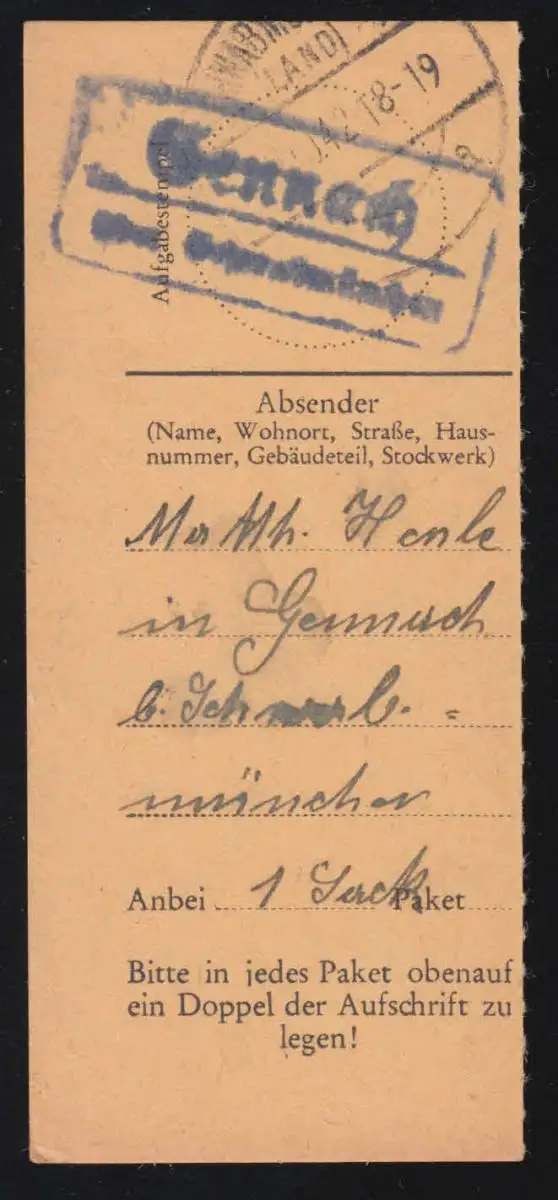 (LAND)
42 18-19
a
Gennach
Aufgabestempel
Absender
(Name, Wohnort, Straße, Haus-
nummer, Gebäudeteil, Stockwerk)
Matth. Henle
in Gennach
b. Schwab-
münchen
Anbei 1 Sack Paket
Bitte in jedes Paket obenauf
ein Doppel der Aufschrift zu
legen!